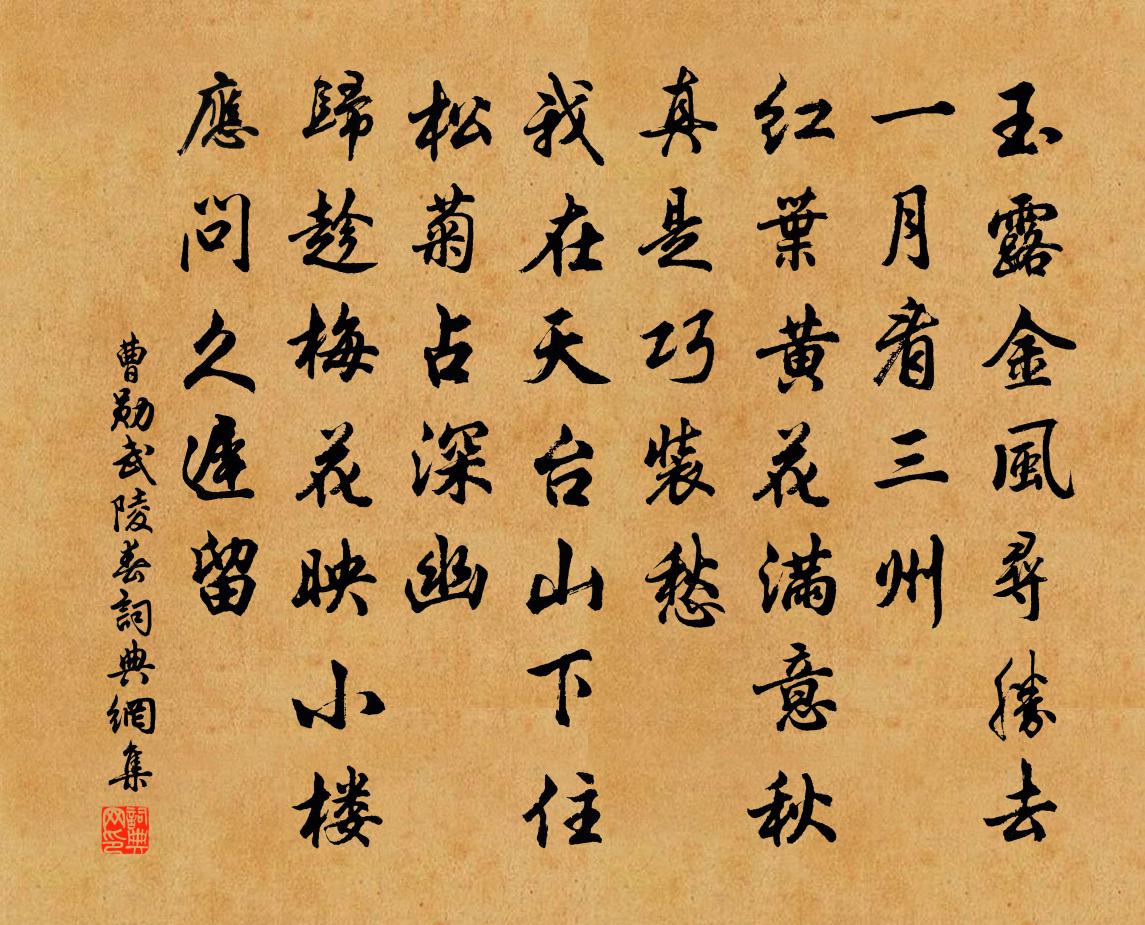 玉露金風尋勝去
一月看三州
紅葉黃花滿意秋
真是巧裝愁
我在天台山下住
松菊占深幽
歸趁梅花映小楼
應問久遲留
曹勛武陵春詞典網集
詞典网印